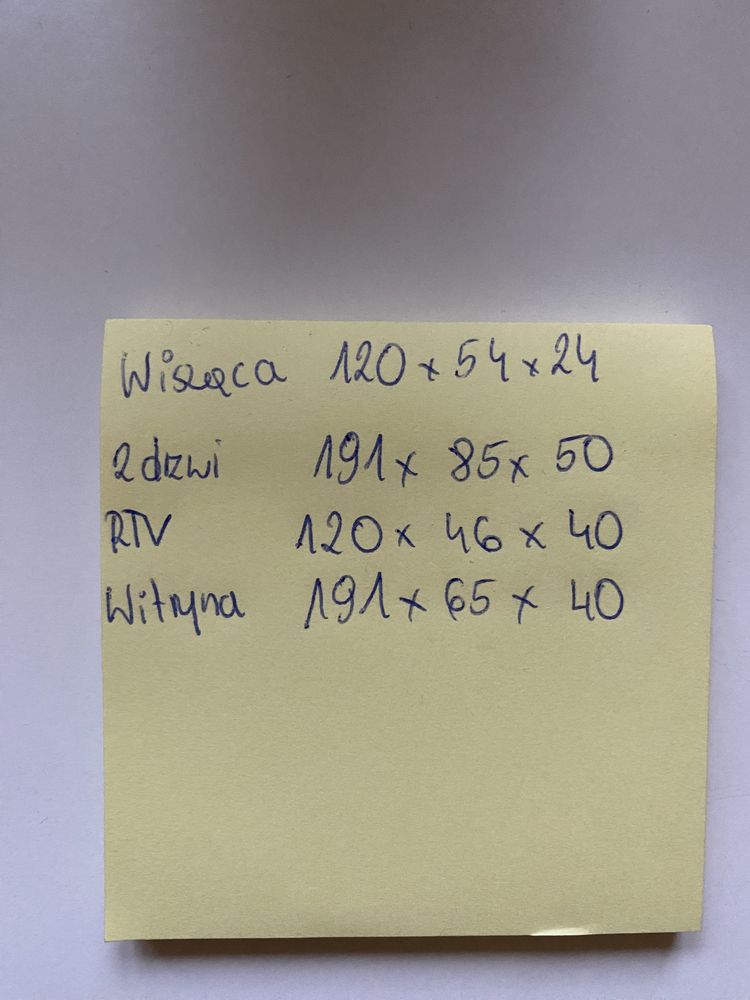 Wisząca 120 x 54 x 24
2 drzwi 191 x 85 x 50
RTV 120 x 46 x 40
Witryna 191 x 65 x 40